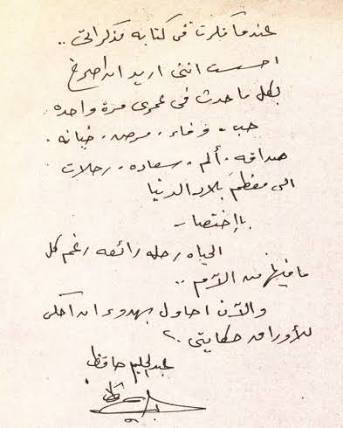 عندما فكرت في كتابه مذكراتي ..
احسست انني اريد ان اصرخ
بكل ما حدث في عمري مرة واحده
حب . وفاء . مرض . خيانه .
صداقه . ألم . سعاده . رحلات
الى معظم بلاد الدنيا
بإختصار
الحياه رحله رائعه رغم كل
ما فيها من آلام ..
والآن احاول بهدوء ان احكي
للأوراق حكايتي .
عبد الحليم حافظ